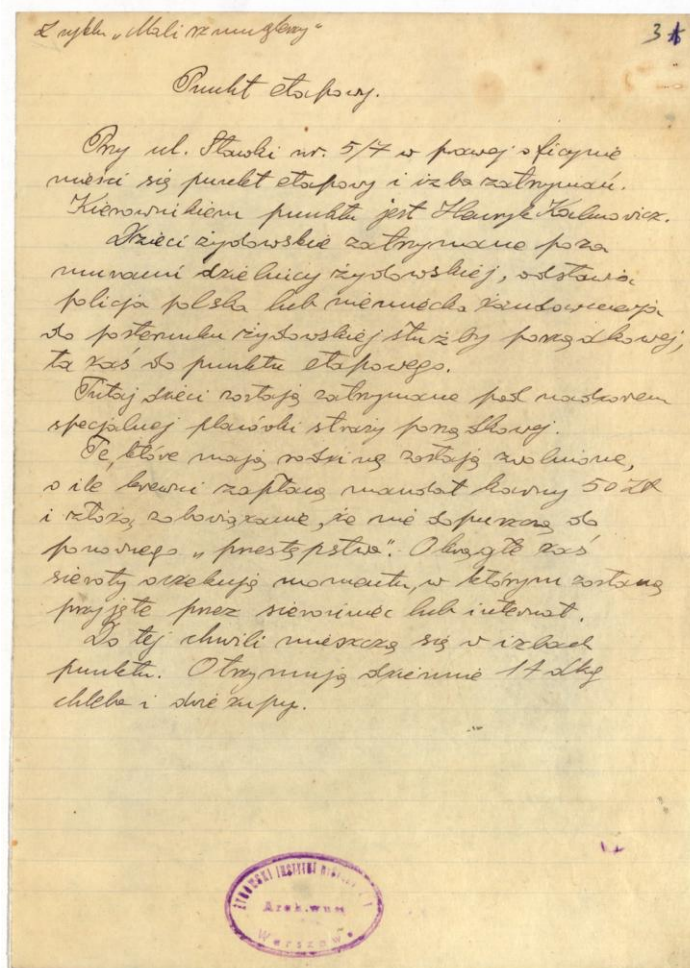 Z cyklu „Mali szmuglerzy"
3
Punkt etapowy.
Przy ul. Stawki nr. 5/7 w prawej oficynie
mieści się punkt etapowy i izba zatrzymań.
Kierownikiem punktu jest Henryk Kalmowicz.
Dzieci żydowskie zatrzymane poza
murami dzielnicy żydowskiej, odstawia
policja polska lub niemiecka żandarmerja
do posterunku żydowskiej służby porządkowej,
ta zaś do punktu etapowego.
Tutaj dzieci zostają zatrzymane pod nadzorem
specjalnej placówki straży porządkowej.
Te, które mają rodzinę zostają zwolnione,
o ile krewni zapłacą mandat karny 50 zł
i złożą zobowiązanie, że nie dopuszczą do
ponownego „przestępstwa". Okrągłe zaś
sieroty oczekują momentu, w którym zostaną
przyjęte przez sierociniec lub internat.
Do tej chwili mieszczą się w izbach
punktu. Otrzymują dziennie 17 dkg
chleba i dwie zupy.
ŻYDOWSKI INSTYTUT
Archiwum
Warszawa